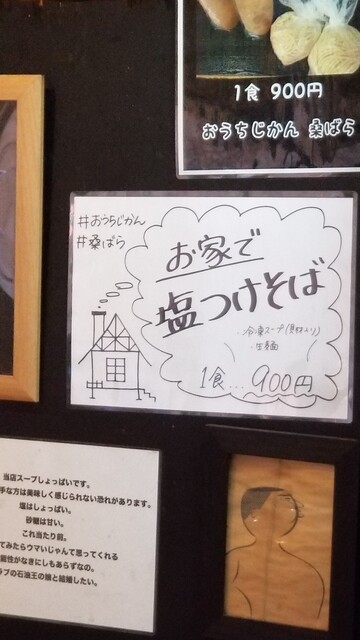 1食 900円
おうちじかん 桑ばら
#おうちじかん
#桑ばら
お家で
塩つけそば
・冷凍スープ(具材入り)
・生麺
1食…900円
当店スープしょっぱいです。
手な方は美味しく感じられない恐れがあります。
塩はしょっぱい。
砂糖は甘い。
これ当たり前。
てみたらウマいじゃんて思ってくれる
能性がなきにしもあらずなの。
ラブの石油王の娘と結婚したい。